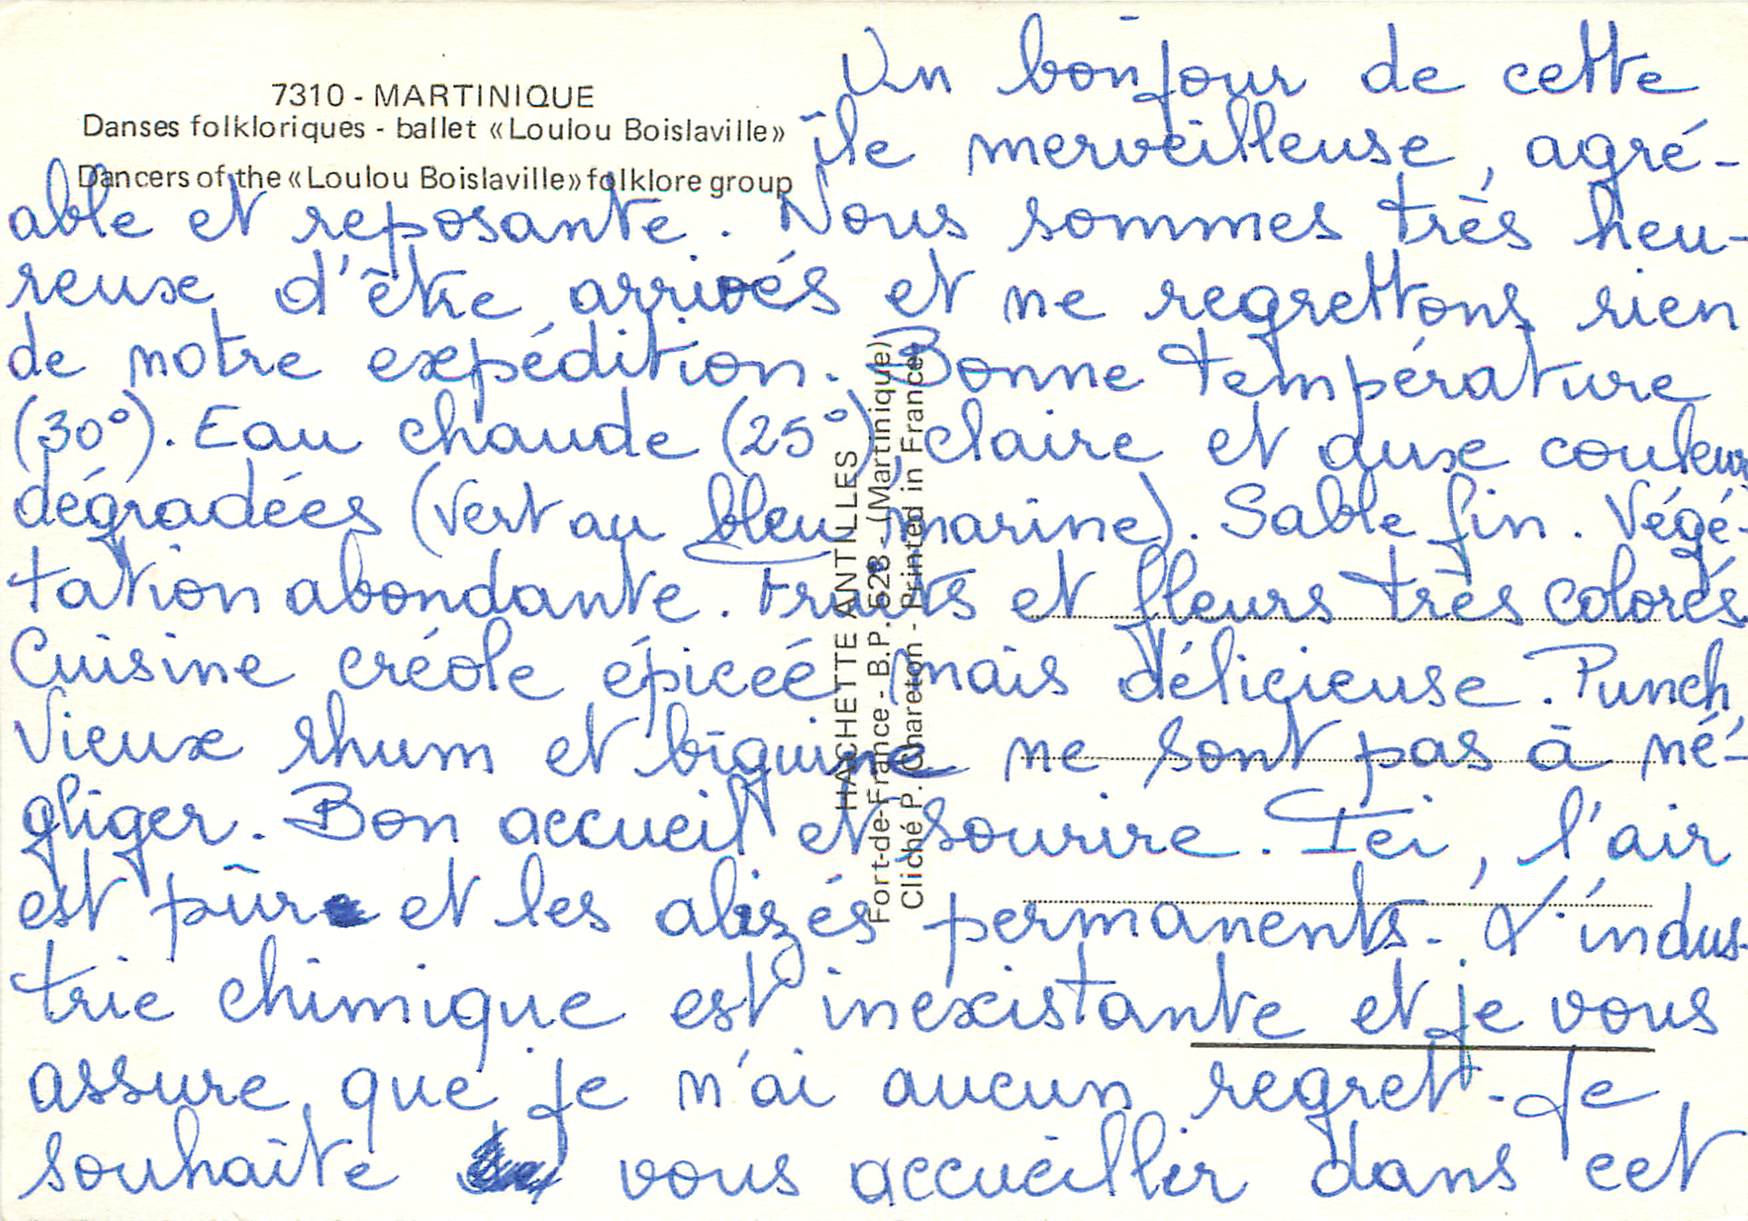 7310 - MARTINIQUE
Danses folkloriques - ballet «Loulou Boislaville»
Dancers of the «Loulou Boislaville» folklore group
Un bonjour de cette
île merveilleuse, agré-
able et reposante. Nous sommes très heu-
reux d'être arrivés et ne regrettons rien
de notre expédition. Bonne température
(30°). Eau chaude (25°), claire et aux couleurs
dégradées (vert au bleu marine). Sable fin. Végé-
tation abondante. Fruits et fleurs très colorés
Cuisine créole épicée mais délicieuse. Punch
Vieux rhum et biguine ne sont pas à né-
gliger. Bon accueil et sourire. Ici, l'air
est pur et les alizés permanents. L'indus-
trie chimique est inexistante et je vous
assure que je n'ai aucun regret. Je
souhaite vous accueillir dans cet
HACHETTE ANTILLES
Fort-de-France - B.P. 528 - (Martinique)
Cliché P. Chareton - Printed in France